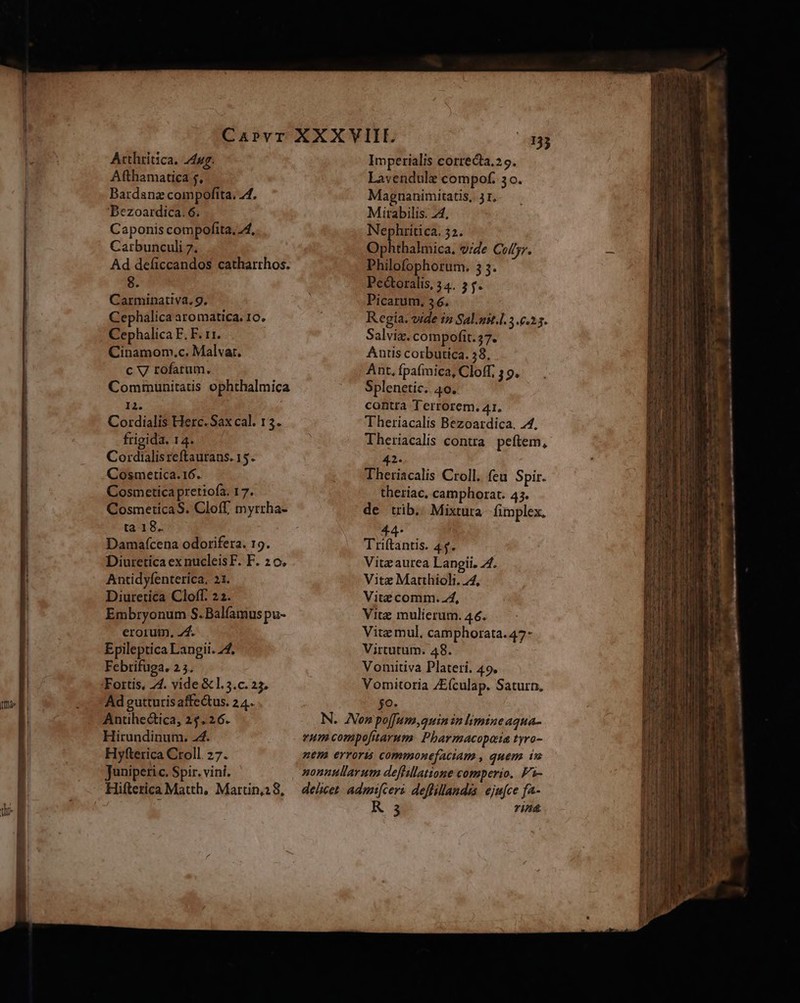 CAPVT XXXVIII. 133
Arthritica. Aug.
Aſthamatica 5.
Bardanæ compoſita. A.
Bezoardica. 6.
Caponis compoſita, A.
Carbunculi 7.
Ad deſiccandos catharrhos.
8.
Carminativa. 9.
Cephalica aromatica. 10.
Cephalica F. F. 11.
Cinamom. c. Malvat.
c 🜄 roſarum.
Communitatis ophthalmica
12.
Cordialis Herc. Sax cal. 13.
frigida. 14.
Cordialis reſtaurans. 15.
Coſmetica. 16.
Coſmetica pretioſa. 17.
Coſmetica S. Cloſſ. myrrha-
ta 18.
Damaſcena odorifera. 19.
Diuretica ex nucleis F. F. 20.
Antidyſenterica, 21.
Diuretica Cloſſ. 22.
Embryonum S. Balſamus pu-
erorum. A.
Epileptica Langii. A.
Febrifuga. 23.
Fortis, A. vide & l. 3. c. 23.
Ad gutturis affectus. 24.
Antihectica, 25. 26.
Hirundinum. A.
Hyſterica Croll. 27.
Juniperi c. Spir. vini.
Hiſterica Matth. Martin, 28.
Imperialis correcta. 29.
Lavendulæ compoſ. 30.
Magnanimitatis, 31.
Mirabilis. A.
Nephritica. 32.
Ophthalmica, vide Collyr.
Philoſophorum. 33.
Pectoralis, 34. 35.
Picarum, 36.
Regia. vide in Sal. nit. l. 3. c. 25.
Salviæ. compoſit. 37.
Antiscorbutica. 38.
Ant. ſpaſmica, Cloſſ. 39.
Splenetic. 40.
contra Terrorem. 41.
Theriacalis Bezoardica. A.
Theriacalis contra peſtem,
42.
Theriacalis Croll. ſeu Spir.
theriac. camphorat. 43.
de trib. Mixtura ſimplex.
44.
Triſtantis. 45.
Vitæ aurea Langii. A.
Vitæ Matthioli. A.
Vitæ comm. A.
Vitæ mulierum. 46.
Vitæ mul. camphorata. 47.
Virtutum. 48.
Vomitiva Plateri. 49.
Vomitoria Æſculap. Saturn.
50.
N. Non poſſum, quin in limine aqua-
rum compoſitarum Pharmacopœiæ tyro-
nem erroris commonefaciam, quem in
nonnullarum deſtillatione comperio. Vi-
delicet admiſceri deſtillandis ejuſce fa-
R 3 rinæ